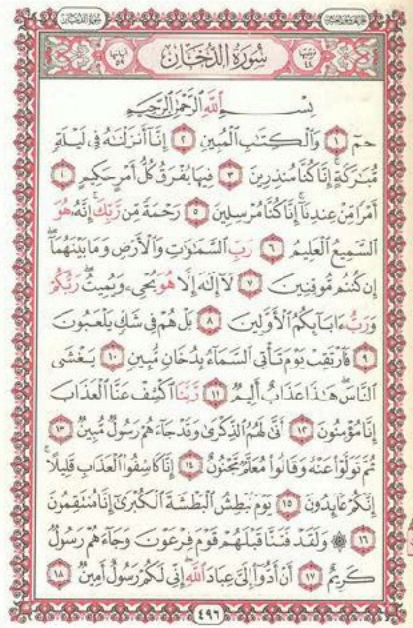 سُورَةُ الدُّخَانِ
بِسْمِ اللَّهِ الرَّحْمَٰنِ الرَّحِيمِ
حمٓ ١ وَالْكِتَٰبِ الْمُبِينِ ٢ إِنَّآ أَنزَلْنَٰهُ فِى لَيْلَةٍ
مُّبَٰرَكَةٍ إِنَّا كُنَّا مُنذِرِينَ ٣ فِيهَا يُفْرَقُ كُلُّ أَمْرٍ حَكِيمٍ ٤
أَمْرًا مِّنْ عِندِنَآ إِنَّا كُنَّا مُرْسِلِينَ ٥ رَحْمَةً مِّن رَّبِّكَ إِنَّهُۥ هُوَ
السَّمِيعُ الْعَلِيمُ ٦ رَبِّ السَّمَٰوَٰتِ وَالْأَرْضِ وَمَا بَيْنَهُمَآ
إِن كُنتُم مُّوقِنِينَ ٧ لَآ إِلَٰهَ إِلَّا هُوَ يُحْىِۦ وَيُمِيتُ رَبُّكُمْ
وَرَبُّ ءَابَآئِكُمُ الْأَوَّلِينَ ٨ بَلْ هُمْ فِى شَكٍّ يَلْعَبُونَ
٩ فَارْتَقِبْ يَوْمَ تَأْتِى السَّمَآءُ بِدُخَانٍ مُّبِينٍ ١٠ يَغْشَى
النَّاسَ هَٰذَا عَذَابٌ أَلِيمٌ ١١ رَّبَّنَا اكْشِفْ عَنَّا الْعَذَابَ
إِنَّا مُؤْمِنُونَ ١٢ أَنَّىٰ لَهُمُ الذِّكْرَىٰ وَقَدْ جَآءَهُمْ رَسُولٌ مُّبِينٌ ١٣
ثُمَّ تَوَلَّوْا۟ عَنْهُ وَقَالُوا۟ مُعَلَّمٌ مَّجْنُونٌ ١٤ إِنَّا كَاشِفُوا۟ الْعَذَابِ قَلِيلًا
إِنَّكُمْ عَآئِدُونَ ١٥ يَوْمَ نَبْطِشُ الْبَطْشَةَ الْكُبْرَىٰٓ إِنَّا مُنتَقِمُونَ
١٦ ۞ وَلَقَدْ فَتَنَّا قَبْلَهُمْ قَوْمَ فِرْعَوْنَ وَجَآءَهُمْ رَسُولٌ
كَرِيمٌ ١٧ أَنْ أَدُّوٓا۟ إِلَىَّ عِبَادَ اللَّهِ إِنِّى لَكُمْ رَسُولٌ أَمِينٌ ١٨
٤٩٦